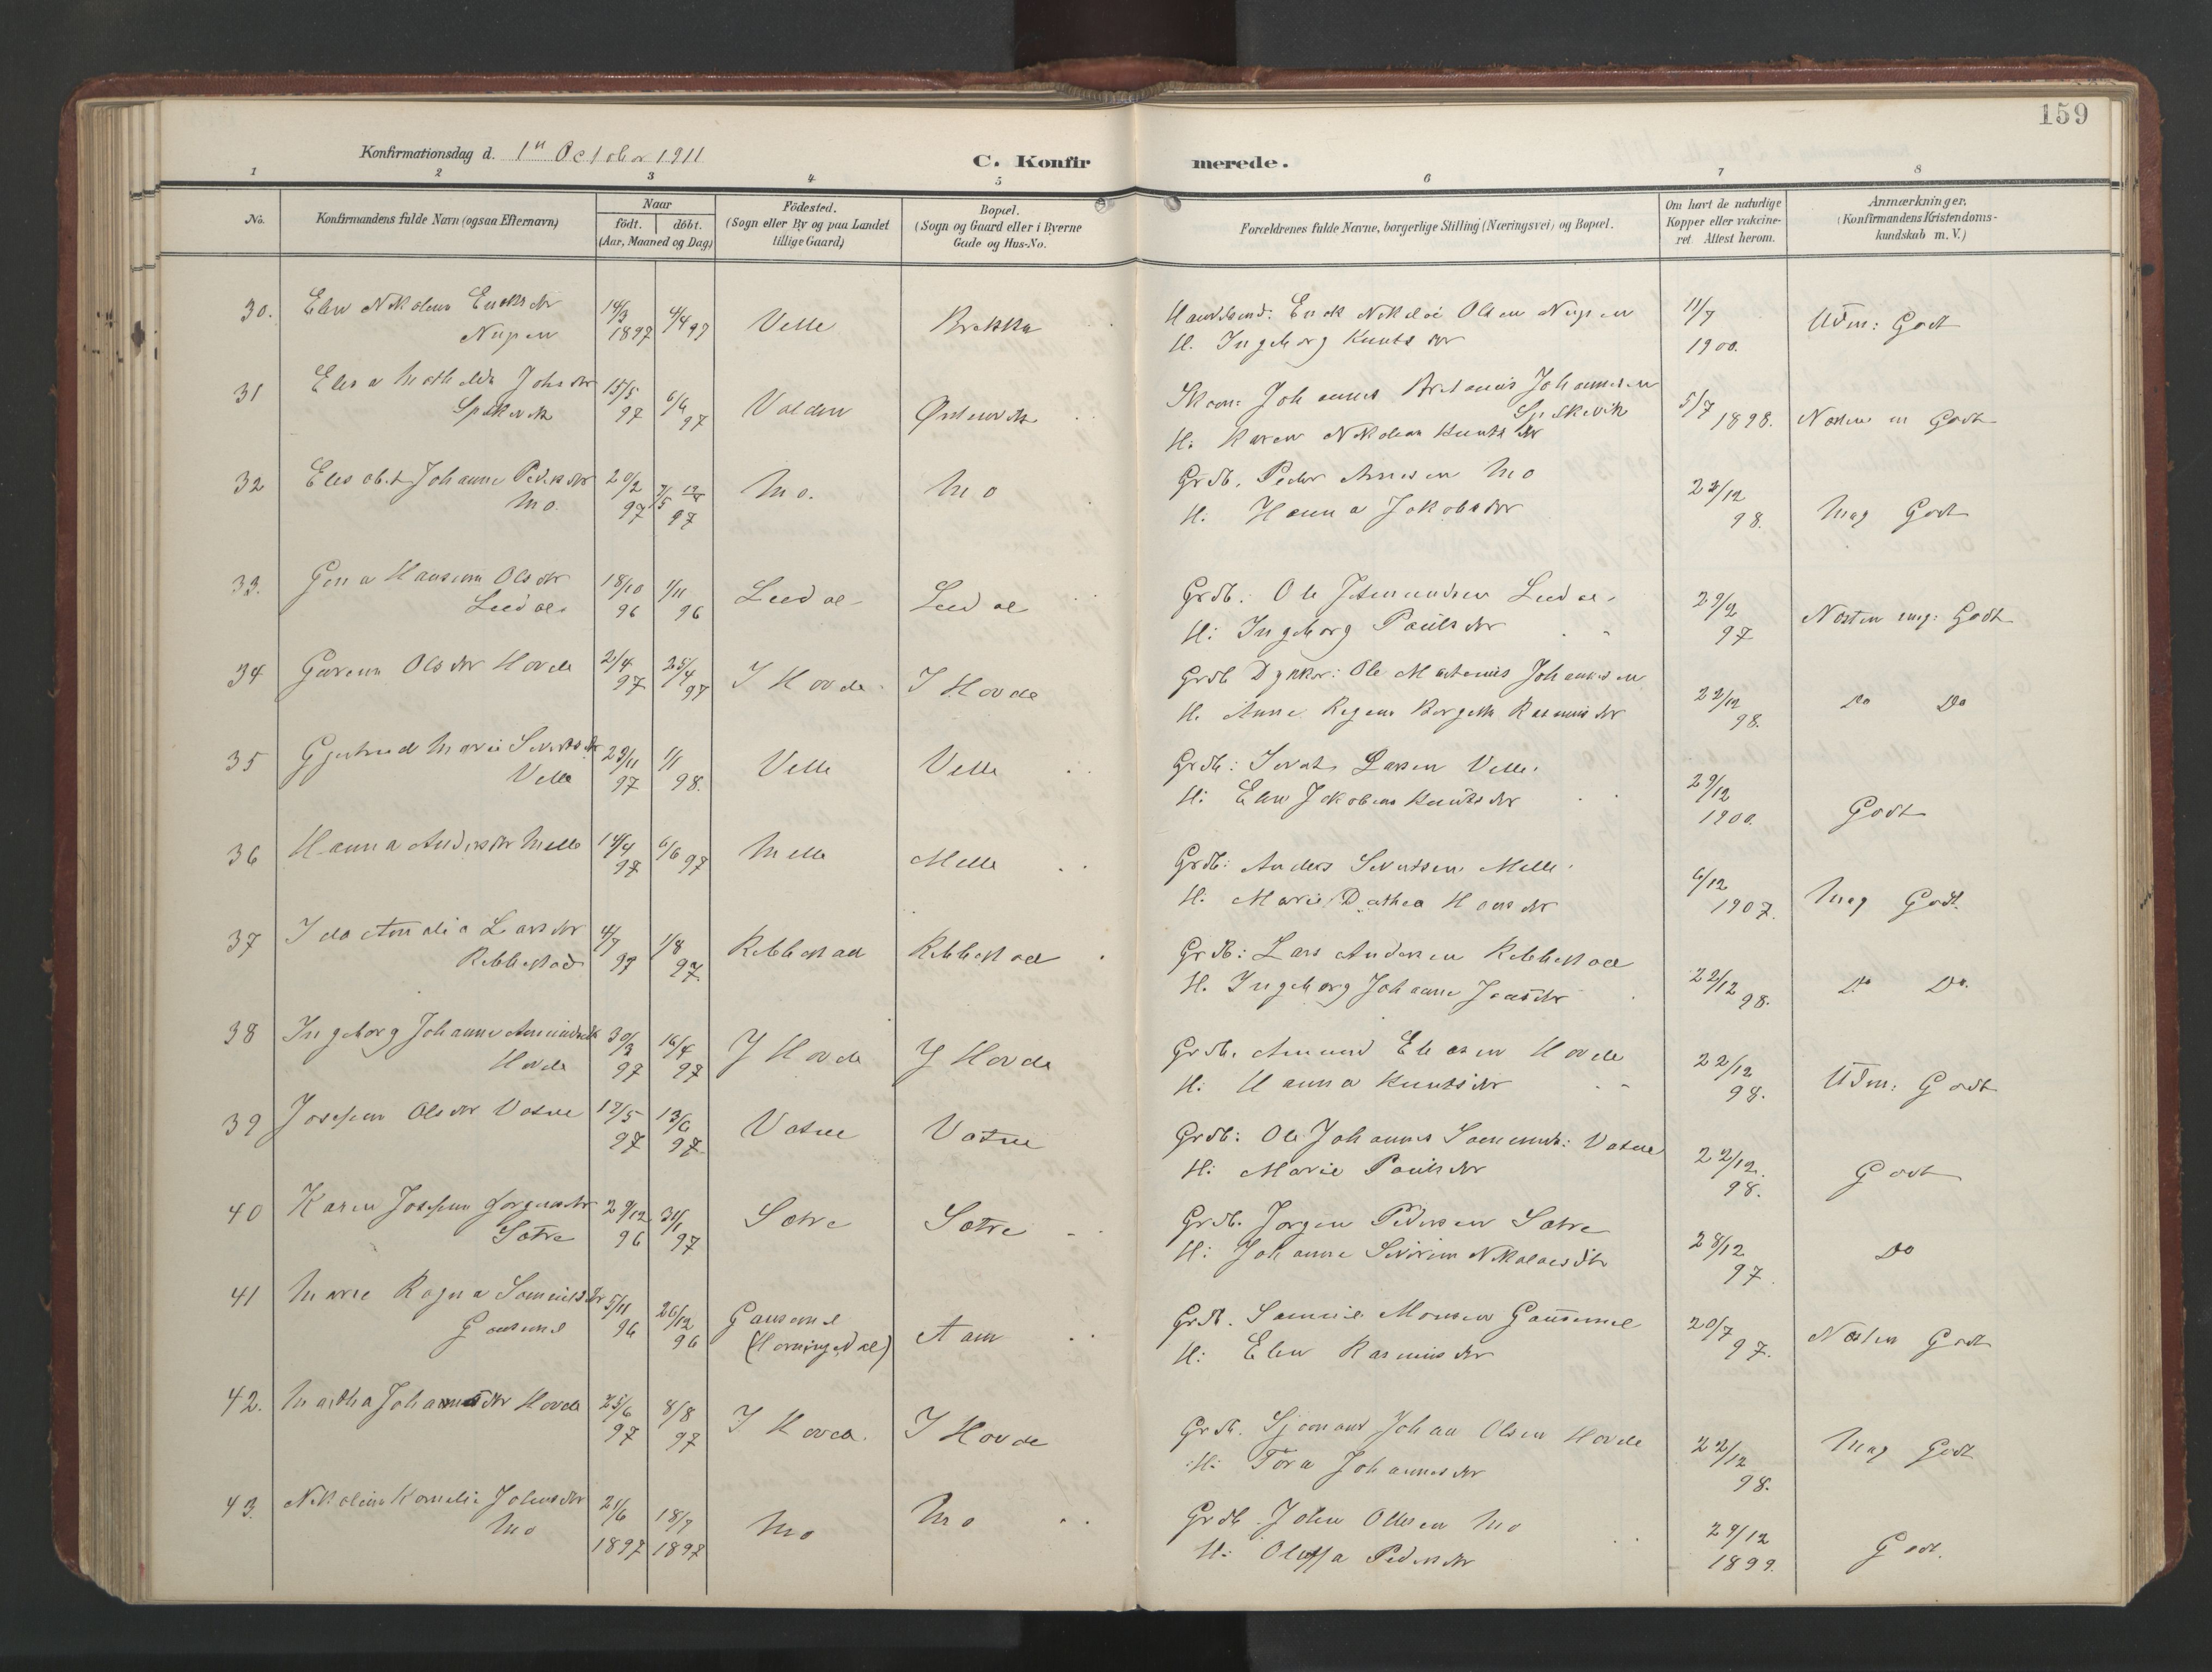 159
Konfirmationsdag d. 1ste October 1911
C. Konfirmerede.
1 2 3 4 5 6 7 8
No.
Konfirmandens fulde Navn (ogsaa Efternavn)
Naar
födt. döbt.
(Aar, Maaned og Dag)
Födested.
(Sogn eller By og paa Landet
tillige Gaard)
Bopæl.
(Sogn og Gaard eller i Byerne
Gade og Hus-No.
Forældrenes fulde Navne, borgerlige Stilling (Næringsvei) og Bopæl.
Om havt de naturlige
Kopper eller vakcine-
ret. Attest herom.
Anmærkninger,
(Konfirmandens Kristendoms-
kundskab m. V.)
30. Elen Nikoline 14/3 4/4 97 Velle Brekke Nikolai Olsen 11/7 Udm: Godt
1897 H. Ingeborg Knutsdtr 1900.
31 Mathilde Johsdtr 15/5 6/6 Volden Johannes Johannesen 5/7 1898. Godt
97 97 H. Karen Nikoline Knutsdtr
32 Elesabet Johanne Pedersdtr 20/2 Mo. Mo Grdb. Peder Mo 22/12 Meg Godt
Mo. 97 97 H. Hanna Jakobsdtr 98.
33. Hansine Olsdtr 18/10 1/11 Grdb: Ole 29/9 Næsten meg: Godt
96 96 H: Ingeborg Paulsdtr 97
34 Olsdtr Hovde 2/4 25/4 Y Hovde Y Hovde Grdb Ole Martinus Johansen 22/12 Do Do
97 97 H. Anne Rasmusdtr 98.
35 Gjertrud Marie Sivertsdtr 29/11 1/1 Velle Velle Grdb: Sivert Larsen Velle. 29/12 Godt
Velle 97 98. H: Elen Jakobine Knutsdtr 1900.
36 Hanna Andersdtr Melle 14/4 6/6 97 Melle Melle Grdb: Anders Sivertsen Melle. 6/12 Meg Godt.
97 H. Marie Dothea Hansdtr 1907.
37 Ida Larsdtr 4/7 1/8 Ribbestad Ribbestad Grdb: Lars Andersen Ribbestad 22/12 Do Do.
Ribbestad 97 97. H. Ingeborg Johanne Jensdtr 98.
38 Ingeborg Johanne Amundsdtr 30/3 16/4 Y Hovde Y Hovde Grdb. Amund Eliasen Hovde 22/12 Udm: Godt
Hovde 97 97 H: Hanna Knutsdtr 98.
39 Josefine Olsdtr Vatne 17/5 13/6 Vatne Vatne Grdb: Ole Johannes Vatne 22/12. Godt
97 97 H: Marie Paulsdtr 98.
40 Karen Josefine Jørgensdtr 29/12 31/1 Sætre Sætre Grdb. Jørgen Pedersen Sætre 28/12 Do
Sætre 96 97 H: Johanne Severine Nikolaisdtr 97.
41 Marie Ragna Samuelsdtr 5/11 26/12 Gausemel Aam Grdb. Samuel Monsen Gausemel 20/7 Næsten Godt
Gausemel 96 96 (Horningdal) H: Elen Rasmusdtr 97.
42. Martha Johannesdtr Hovde 25/6 8/8 Y Hovde. Y Hovde Grdb. Johan Olsen Hovde 22/12 Meg Godt
97 97 H: Tora Johannesdtr 98.
43. Nikoline Kornelie Johnsdtr 21/6 18/7 Mo Mo Grdb. John Mo 29/12 Godt.
Mo 1897 1897 H: Oluffa Pedersdtr 1899.